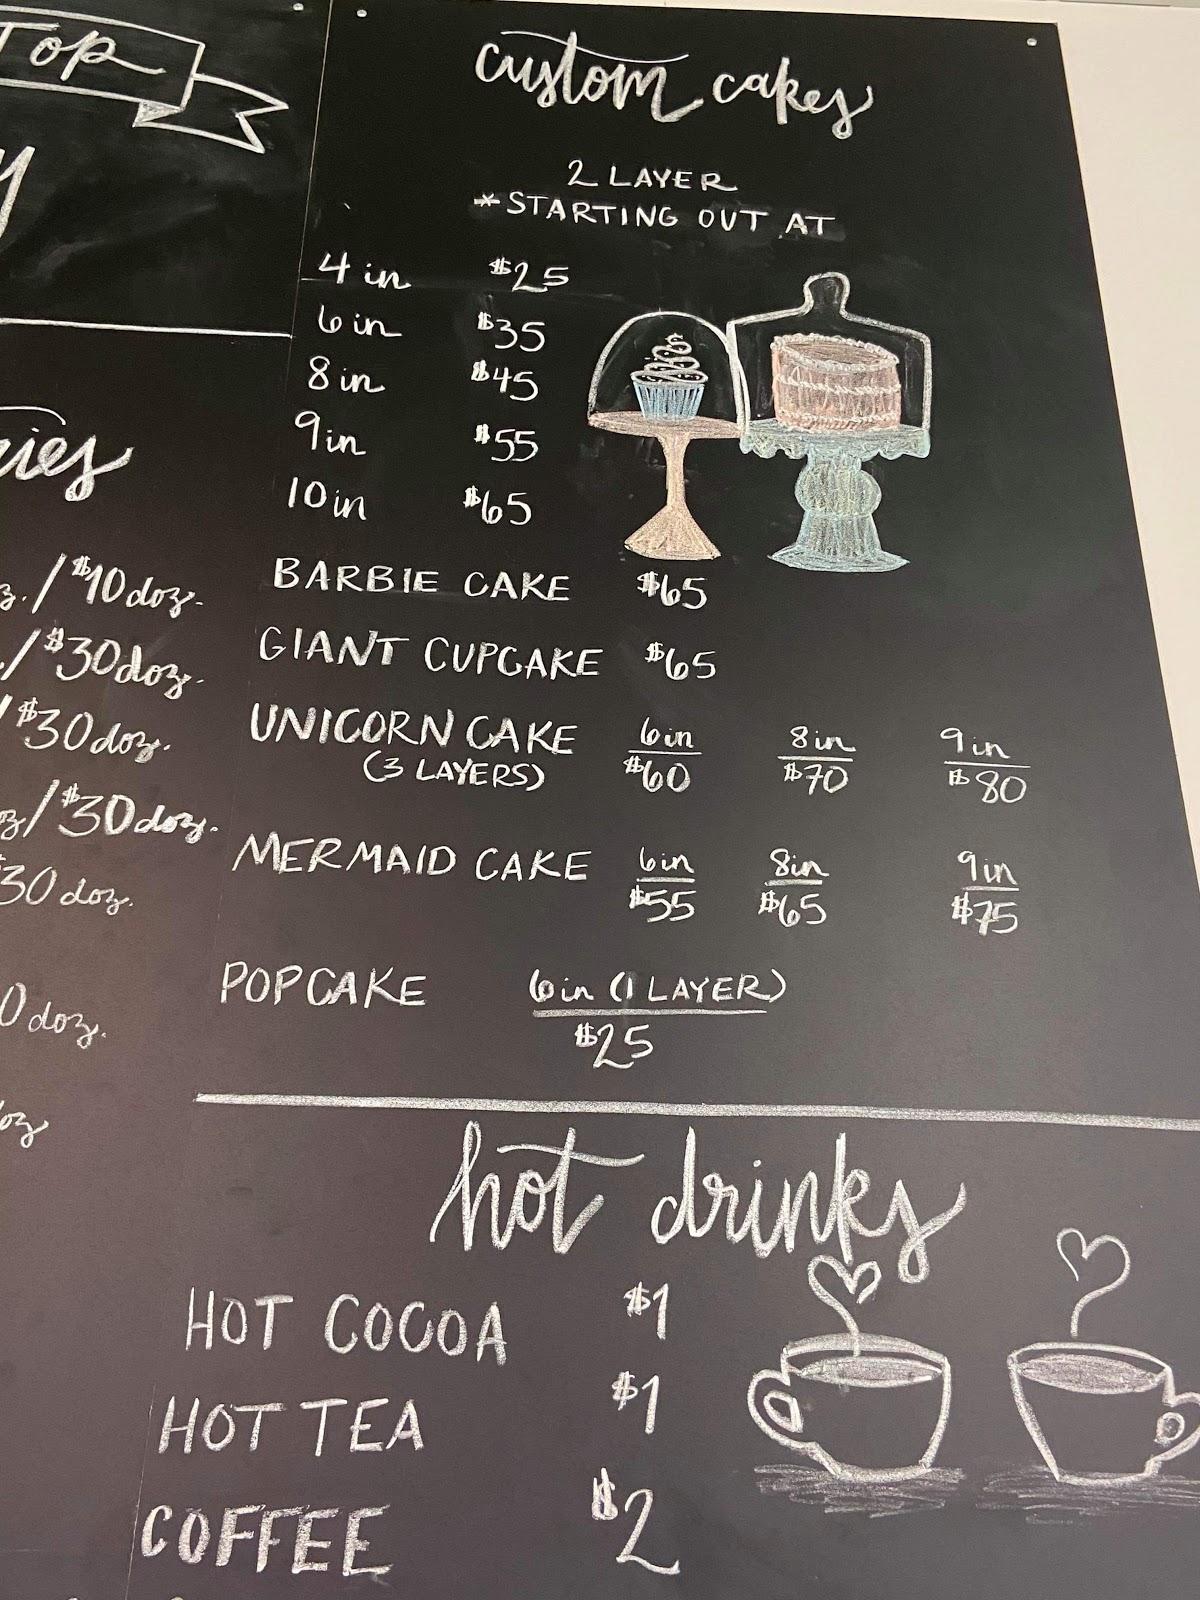 Top
y
ries
z. / $10 doz.
. / $30 doz.
/ $30 doz.
oz / $30 doz.
$30 doz.
0 doz.
oz
custom cakes
2 LAYER
*STARTING OUT AT
4 in $25
6 in $35
8 in $45
9 in $55
10 in $65
BARBIE CAKE $65
GIANT CUPCAKE $65
UNICORN CAKE 6 in 8 in 9 in
(3 LAYERS) $60 $70 $80
MERMAID CAKE 6 in 8 in 9 in
$55 $65 $75
POPCAKE 6 in (1 LAYER)
$25
hot drinks
HOT COCOA $1
HOT TEA $1
COFFEE $2